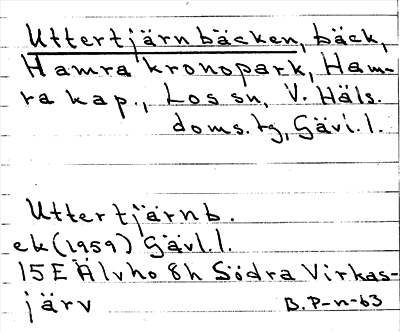 Uttertjärnbäcken, bäck,
Hamra kronopark, Ham-
ra kap., Los sn, V. Häls.
doms.tg, Gävl.l.
Uttertjärnb.
ek (1959) Gävl.l.
15E Älvho 8h Södra Virkas-
järv B.P-n-63